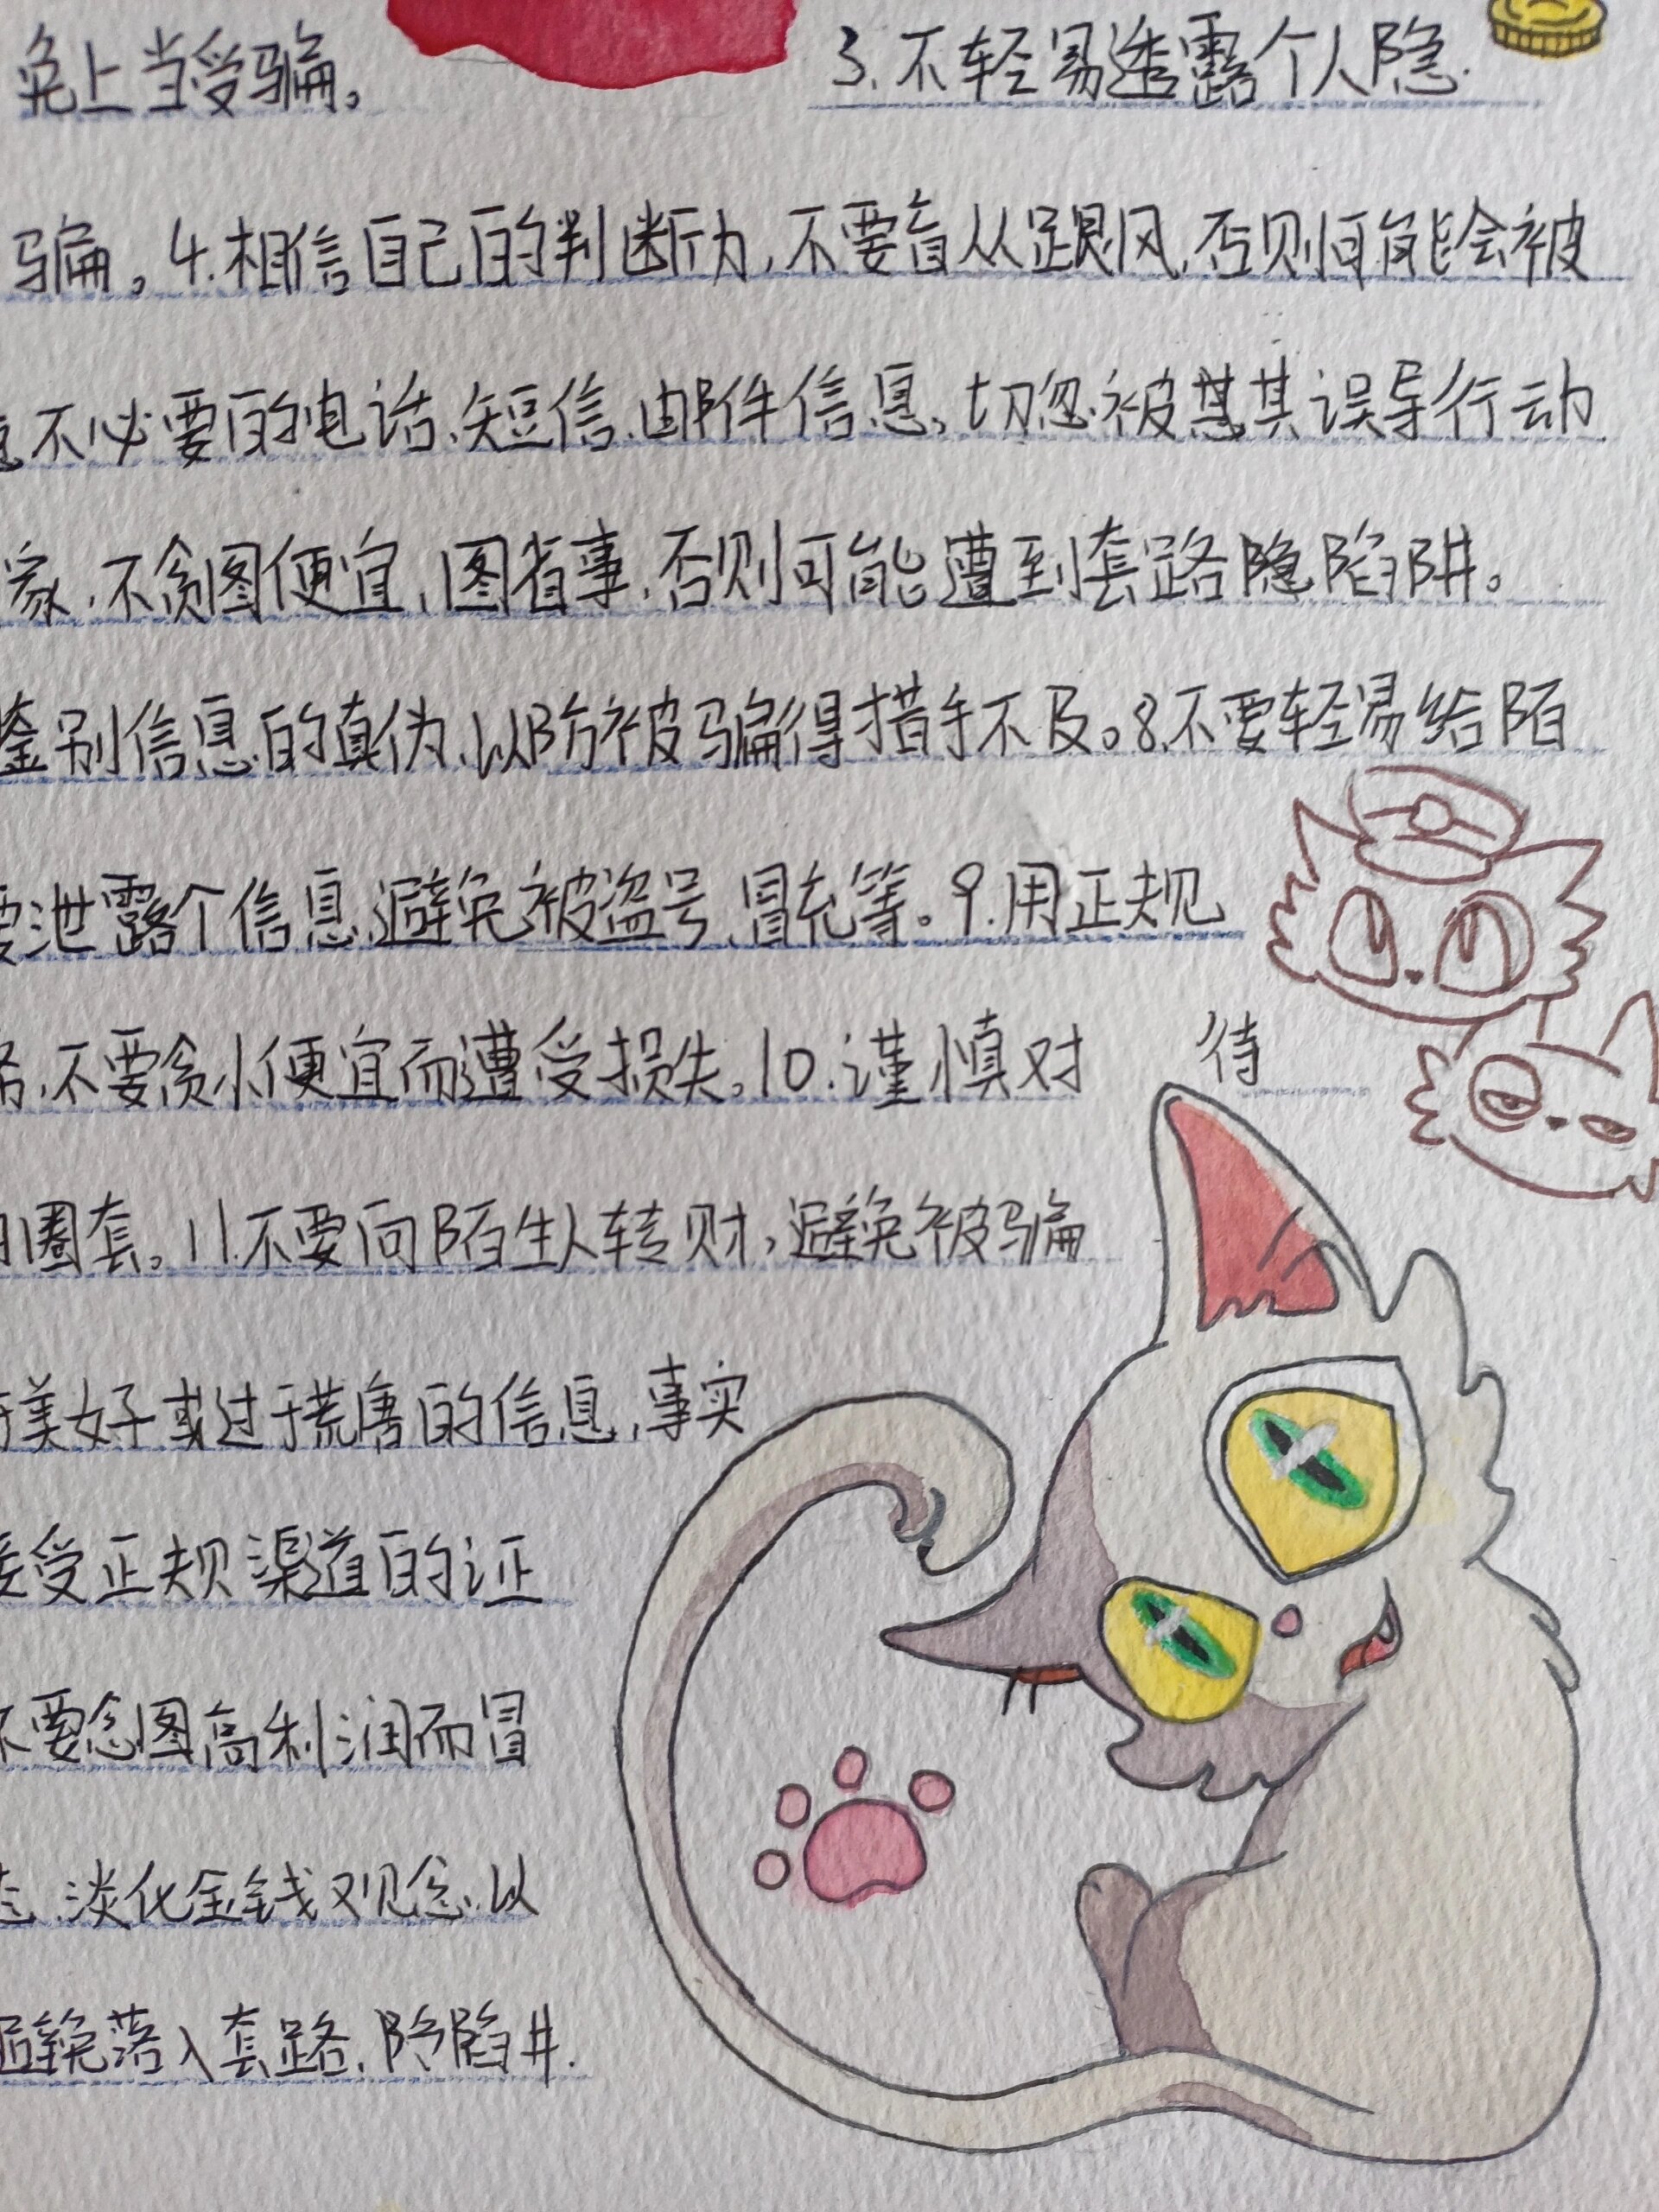 免上当受骗。 3.不轻易透露个人隐
骗。4.相信自己的判断力,不要盲从跟风,否则可能会被
不必要的电话、短信、邮件信息,切忽被其误导行动
家,不贪图便宜,图省事,否则可能遭到套路隐陷阱。
鉴别信息的真伪,以防被骗得措手不及。8.不要轻易给陌
要泄露个信息,避免被盗号、冒充等。9.用正规
不要贪小便宜而遭受损失。10.谨慎对 待
圈套。11.不要向陌生人转财,避免被骗
美好或过于荒唐的信息,事实
接受正规渠道的证
不要忿图高利润而冒
淡化金钱观念,以
避免落入套路,陷阱.